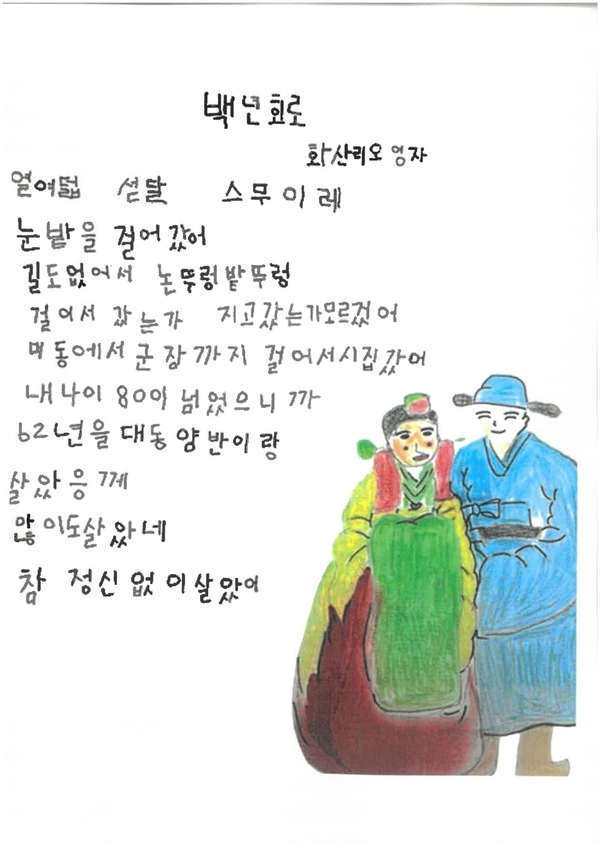 백년효로
화산리오영자
열여덟 섣달 스무이레
눈밭을 걸어갔어
길도없어서 논뚜렁밭뚜렁
걸어서 갔는가 지고갔는가모르겄어
미동에서 군장까지 걸어서시집갔어
내나이 80이 넘었으니까
62년을 대동양반이랑
살았응께
많이도살았네
참 정신없이살았어